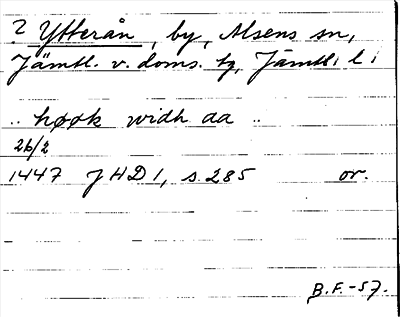 ? Ytterån, by, Alsens sn,
Jämtl. v. doms. tg, Jämtl. l.
.. høøk widh da ..
26/2
1447 JHD 1, s. 285 or.
B.F.-57.